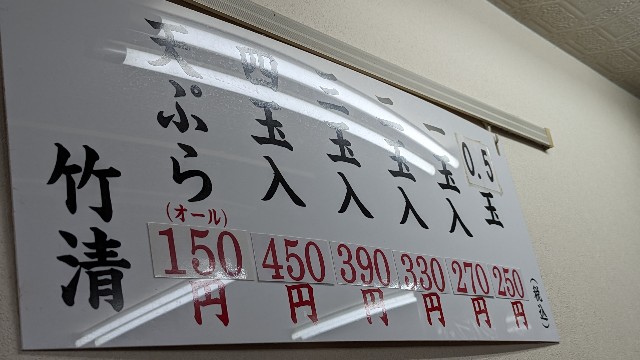 0.5玉 250円
一玉入 270円
二玉入 330円
三玉入 390円
四玉入 450円
天ぷら(オール) 150円
竹清